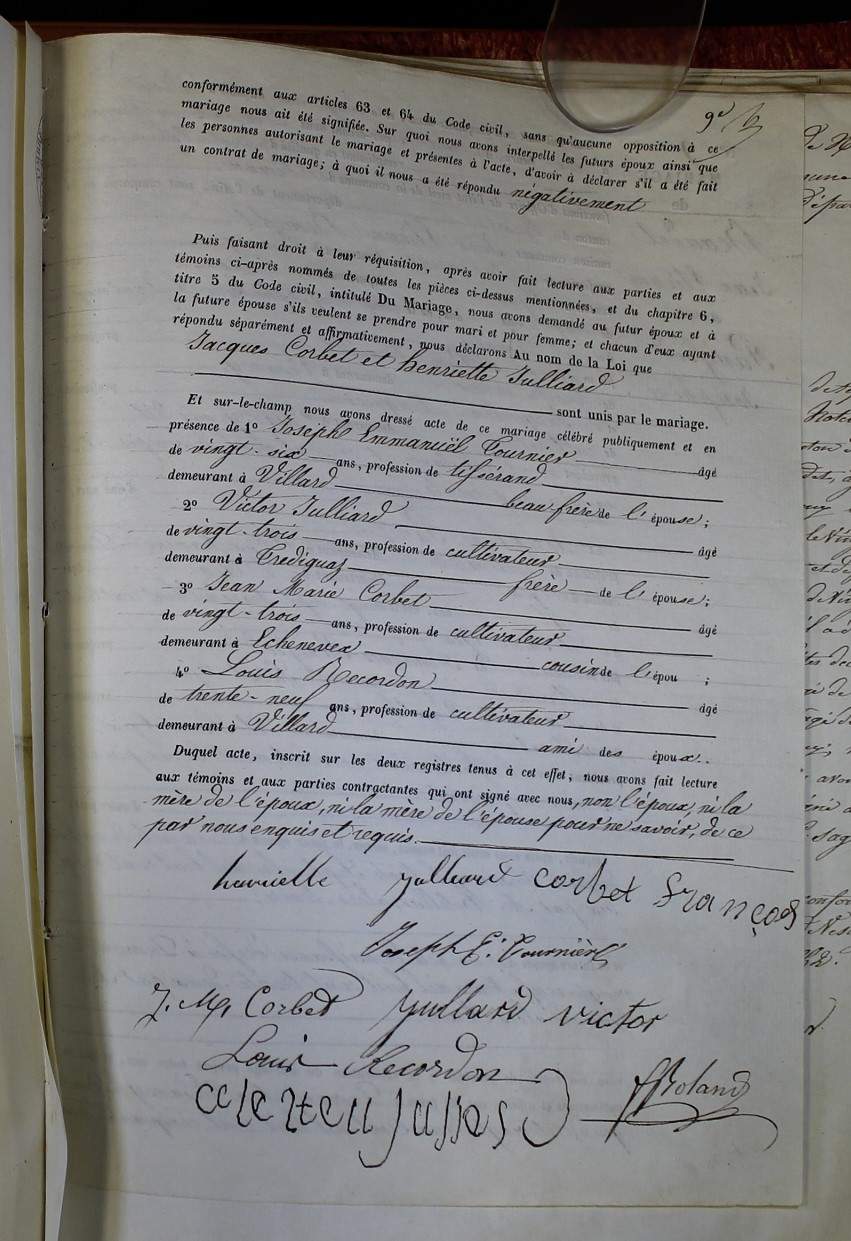 conformément aux articles 63 et 64 du Code civil, sans qu'aucune opposition à ce
mariage nous ait été signifiée. Sur quoi nous avons interpellé les futurs époux ainsi que
les personnes autorisant le mariage et présentes à l'acte, d'avoir à déclarer s'il a été fait
un contrat de mariage; à quoi il nous a été répondu négativement
Puis faisant droit à leur réquisition, après avoir fait lecture aux parties et aux
témoins ci-après nommés de toutes les pièces ci-dessus mentionnées, et du chapitre 6,
titre 5 du Code civil, intitulé Du Mariage, nous avons demandé au futur époux et à
la future épouse s'ils veulent se prendre pour mari et pour femme; et chacun d'eux ayant
répondu séparément et affirmativement, nous déclarons Au nom de la Loi que
Jacques Corbet et henriette Julliard
sont unis par le mariage.
Et sur-le-champ nous avons dressé acte de ce mariage célébré publiquement et en
présence de 1° Joseph Emmanuël Tournier âgé
de vingt-six ans, profession de tissérand
demeurant à Villard beau frère de l'épouse;
2° Victor Julliard âgé
de vingt-trois ans, profession de cultivateur
demeurant à frère de l'épouse;
3° Jean Marie Corbet âgé
de vingt-trois ans, profession de cultivateur
demeurant à Echenevex cousin de l'épou ;
4° Louis Recordon âgé
de trente-neuf ans, profession de cultivateur
demeurant à Villard ami des époux.
Duquel acte, inscrit sur les deux registres tenus à cet effet, nous avons fait lecture
aux témoins et aux parties contractantes qui ont signé avec nous, non l'époux, ni la
mère de l'époux, ni la mère de l'épouse pour ne savoir, de ce
par nous enquis et requis.
henriette Julliard Corbet François
Joseph E. Tournier
J. M. Corbet Julliard victor
Louis Recordon